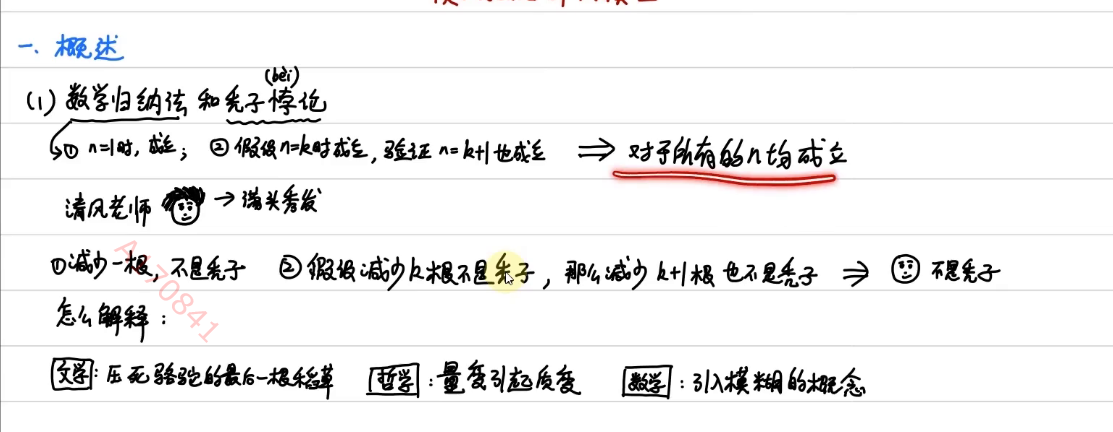 一、概述
(bèi)
(1) 数学归纳法 和秃子悖论
① n=1时, 成立; ② 假设n=k时成立, 验证 n=k+1也成立 ⇒ 对于所有的n均成立
清风老师 → 满头秀发
①减少一根, 不是秃子 ② 假设减少k根不是秃子, 那么减少 k+1根 也不是秃子 ⇒ 不是秃子
怎么解释:
文学: 压死骆驼的最后一根稻草 哲学: 量变引起质变 数学: 引入模糊的概念